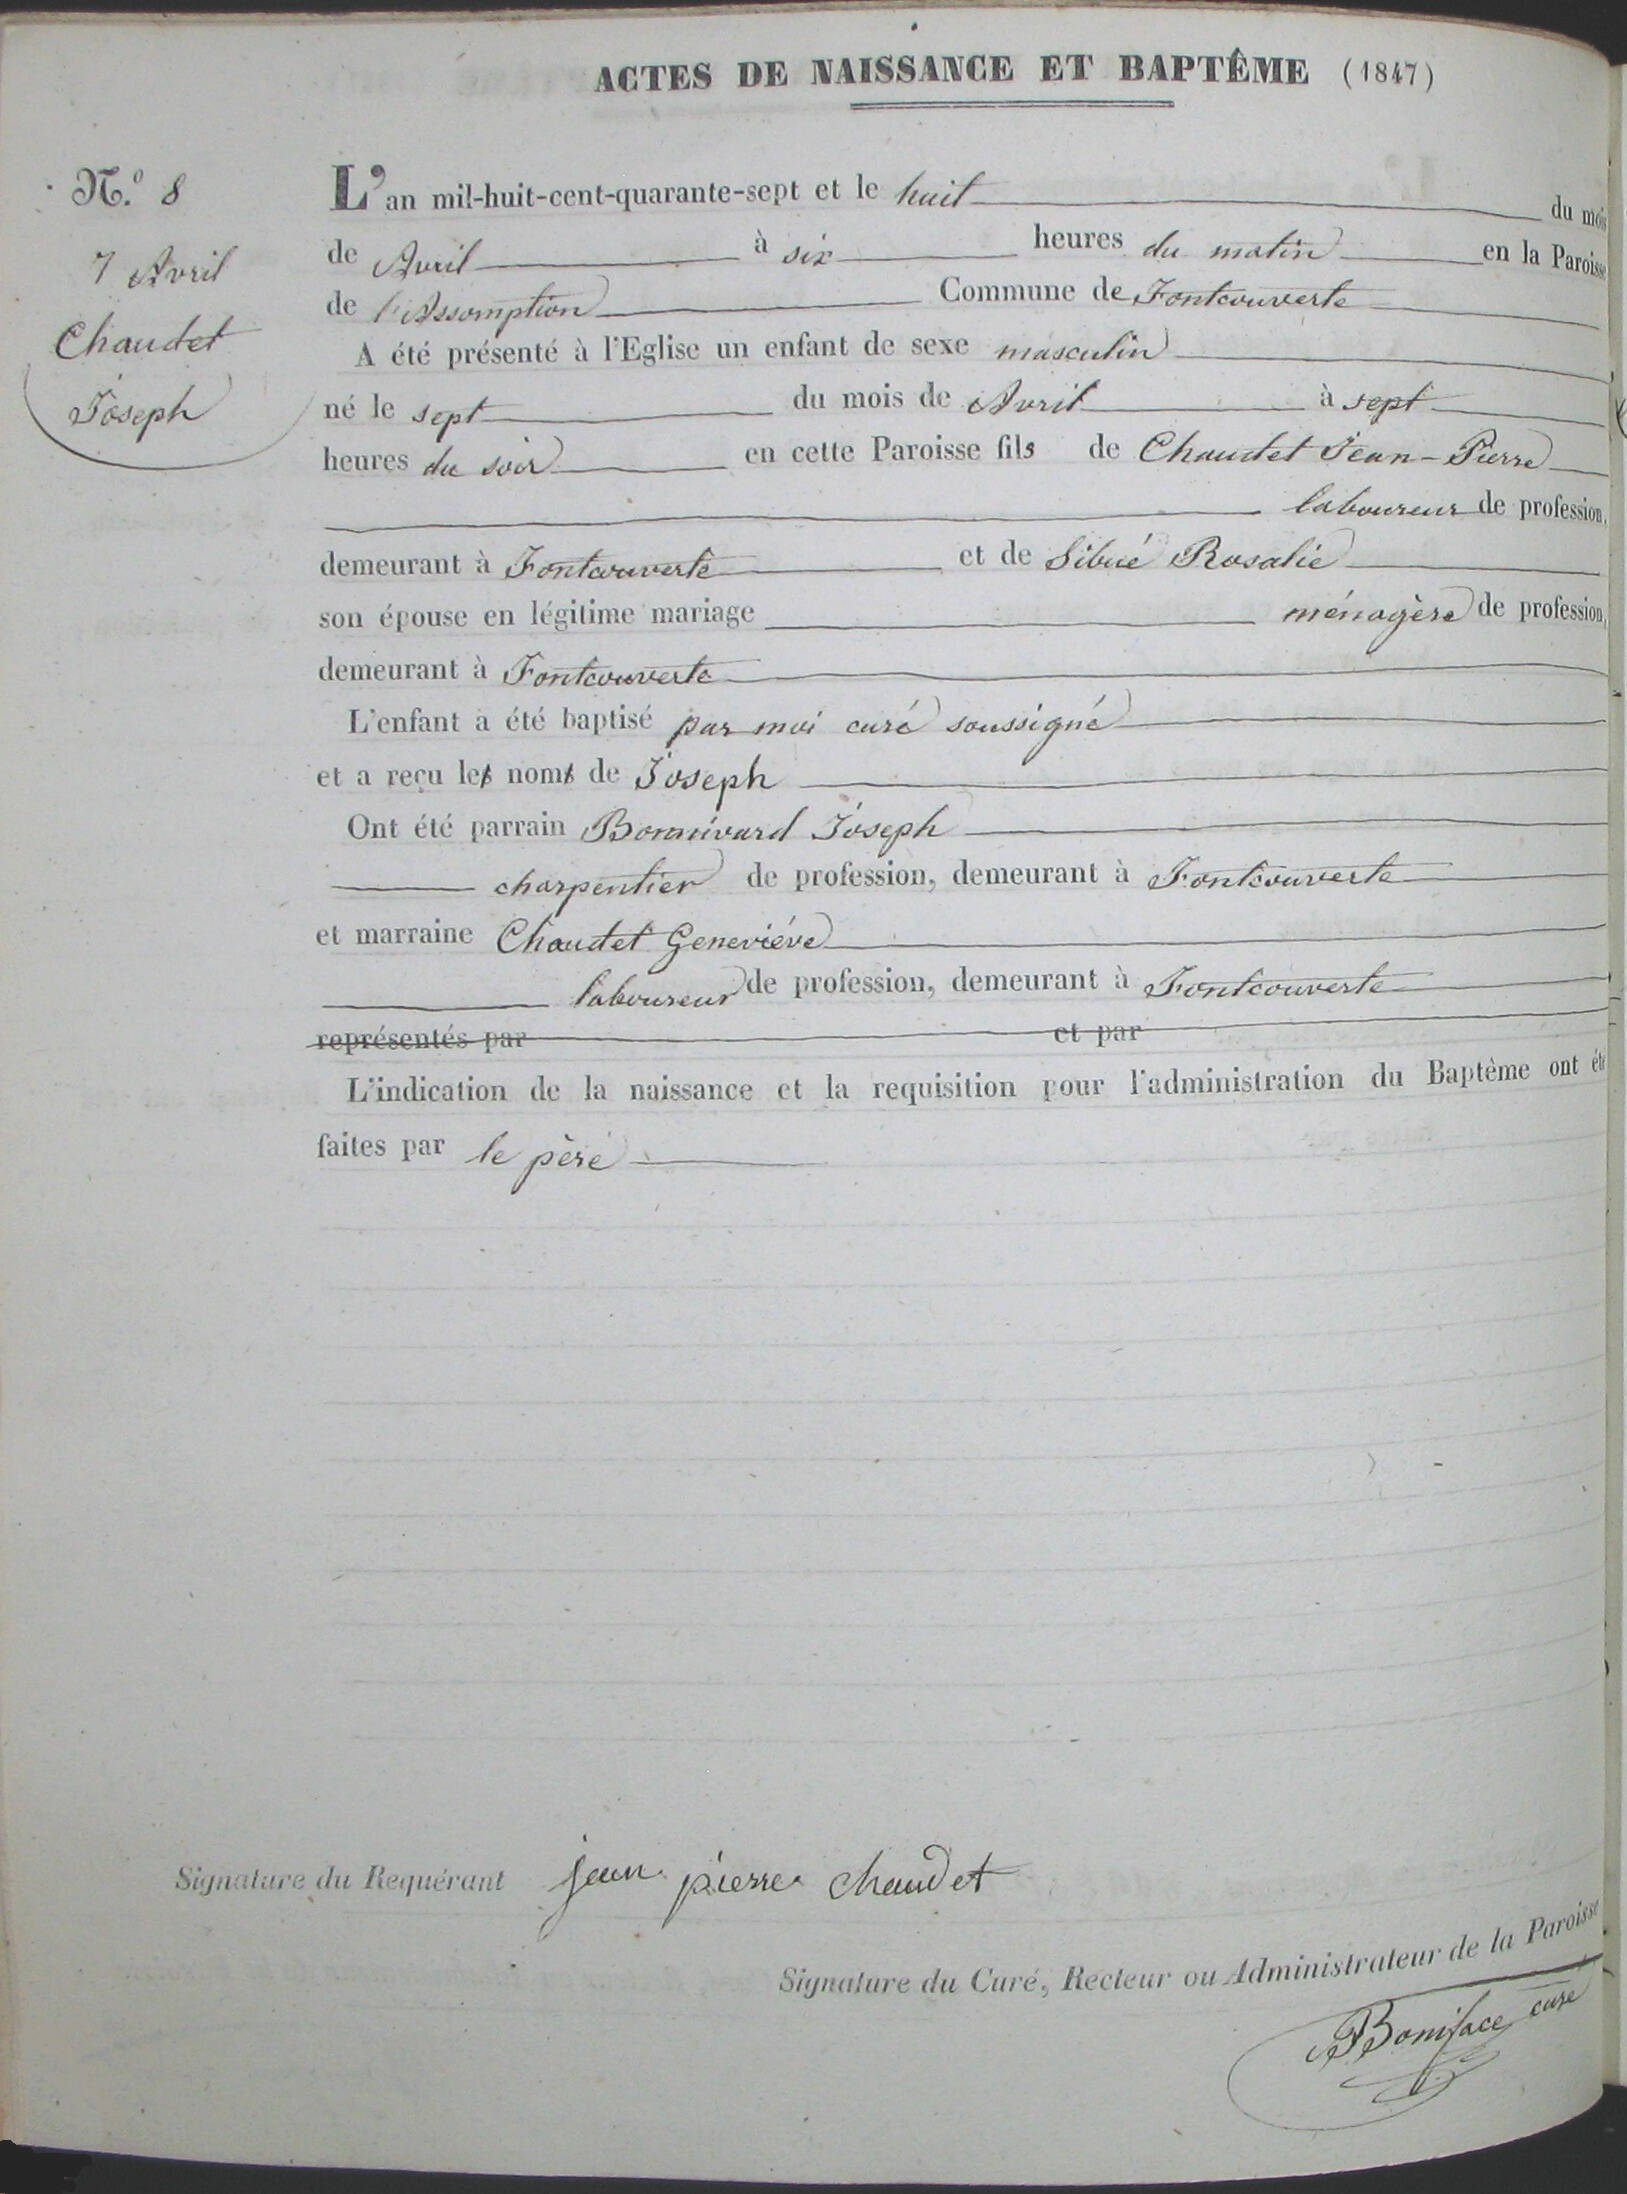 ACTES DE NAISSANCE ET BAPTÊME (1847)
N.o 8
7 Avril
Chaudet
Joseph
L'an mil-huit-cent-quarante-sept et le huit du mois
de Avril à six heures du matin en la Paroisse
de l'Assomption Commune de Fontcouverte
A été présenté à l'Eglise un enfant de sexe masculin
né le sept du mois de Avril à sept
heures du soir en cette Paroisse fils de Chaudet Jean-Pierre
laboureur de profession,
demeurant à Fontcouverte et de Sibué Rosalie
son épouse en légitime mariage ménagère de profession,
demeurant à Fontcouverte
L'enfant a été baptisé par moi curé soussigné
et a reçu les noms de Joseph
Ont été parrain Bonnivard Joseph
charpentier de profession, demeurant à Fontcouverte
et marraine Chaudet Geneviéve
laboureur de profession, demeurant à Fontcouverte
représentés par et par
L'indication de la naissance et la requisition pour l'administration du Baptème ont été
faites par le père
Signature du Requérant jean pierre chaudet
Signature du Curé, Recteur ou Administrateur de la Paroisse
Boniface curé